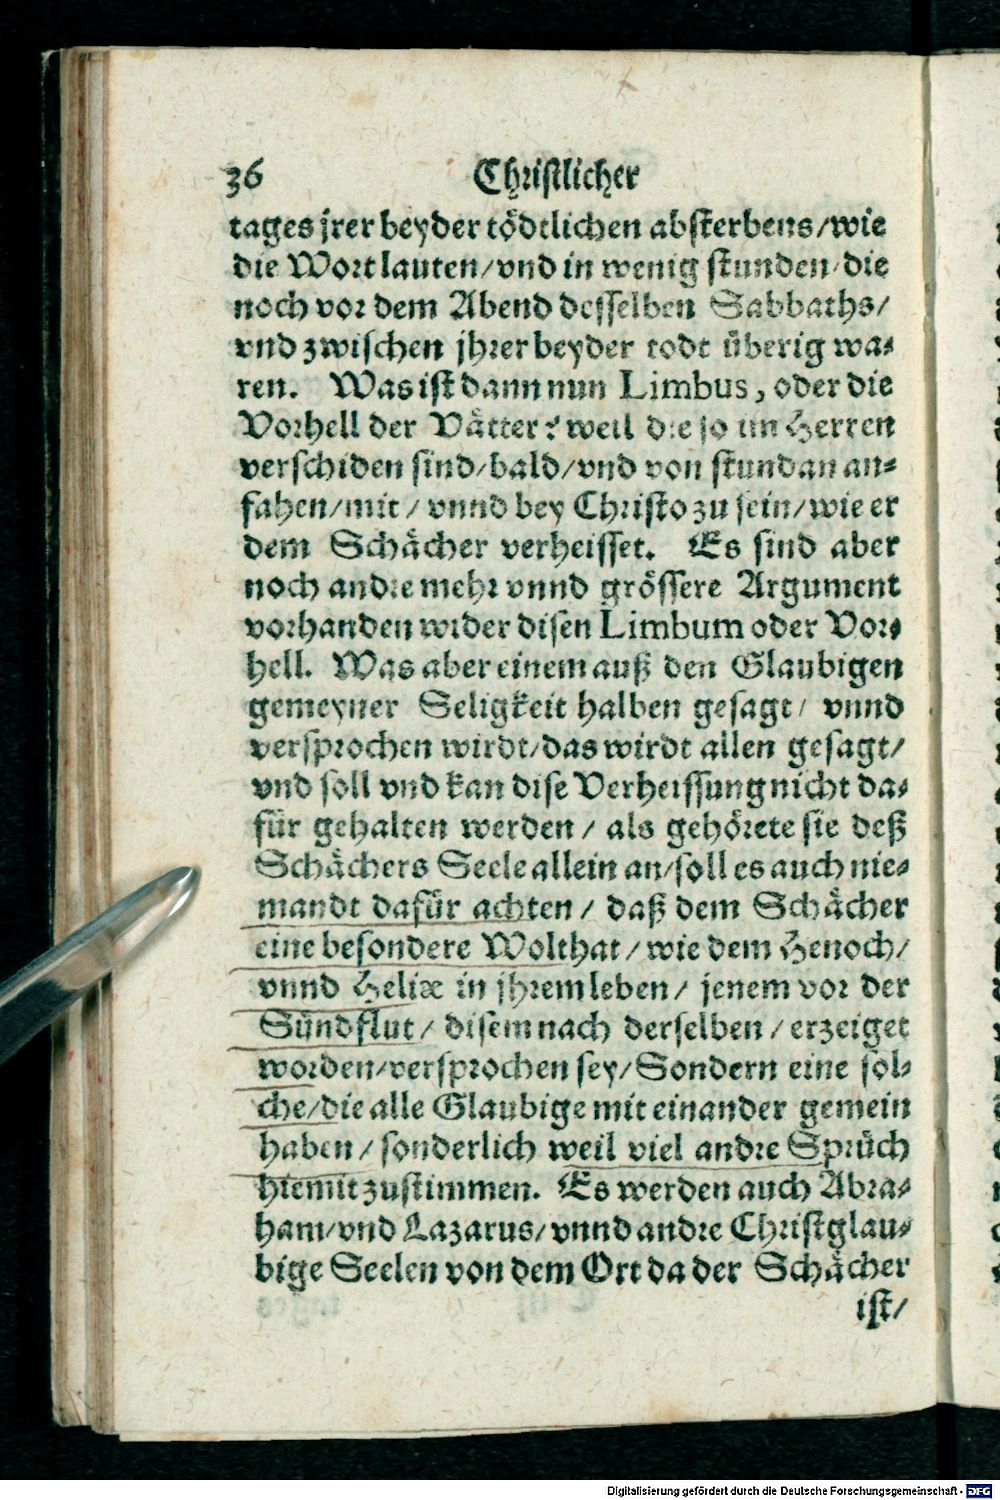 36 Christlicher
tages jrer beyder tödtlichen absterbens/wie
die Wort lauten/vnd in wenig stunden/die
noch vor dem Abend desselben Sabbaths/
vnd zwischen jhrer beyder todt überig wa-
ren. Was ist dann nun Limbus, oder die
Vorhell der Vätter? weil die so im Herren
verschiden sind/bald/vnd von stund an an-
fahen/mit/ vnnd bey Christo zu sein/wie er
dem Schächer verheisset. Es sind aber
noch andre mehr vnnd grössere Argument
vorhanden wider disen Limbum oder Vor-
hell. Was aber einem auß den Glaubigen
gemeyner Seligkeit halben gesagt/ vnnd
versprochen wirdt/das wirdt allen gesagt/
vnd soll vnd kan dise Verheissung nicht da-
für gehalten werden/ als gehörete sie deß
Schächers Seele allein an/soll es auch nie-
mandt dafür achten/ daß dem Schächer
eine besondere Wolthat/ wie dem Henoch/
vnnd Heliæ in jhrem leben/ jenem vor der
Sündflut/ disem nach derselben/ erzeiget
worden/versprochen sey/Sondern eine sol-
che/die alle Glaubige mit einander gemein
haben/ sonderlich weil viel andre Sprüch
hiemit zustimmen. Es werden auch Abra-
ham/vnd Lazarus/vnnd andre Christglau-
bige Seelen von dem Ort da der Schächer
ist/
Digitalisierung gefördert durch die Deutsche Forschungsgemeinschaft - DFG